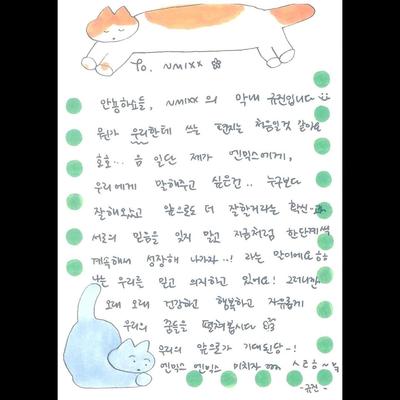 To. NMIXX
안뇽하쇼들, NMIXX 의 막내 규진입니다
뭔가 우리한테 쓰는 편지는 처음일것 같아요
호호... 음 일단 제가 엔믹스에게,
우리에게 말해주고 싶은건.. 누구보다
잘해왔고 앞으로도 더 잘할거라는 확신과
서로의 믿음을 잊지 말고 지금처럼 한단계씩
계속해서 성장해 나가자..! 라는 말이에요
나는 우리를 믿고 의지하고 있어요! 그러니깐
오래 오래 건강하고 행복하고 자유롭게
우리의 꿈들을 펼쳐봅시다
우리의 앞으로가 기대된당~!
엔믹스 엔믹스 미치자
-규진-